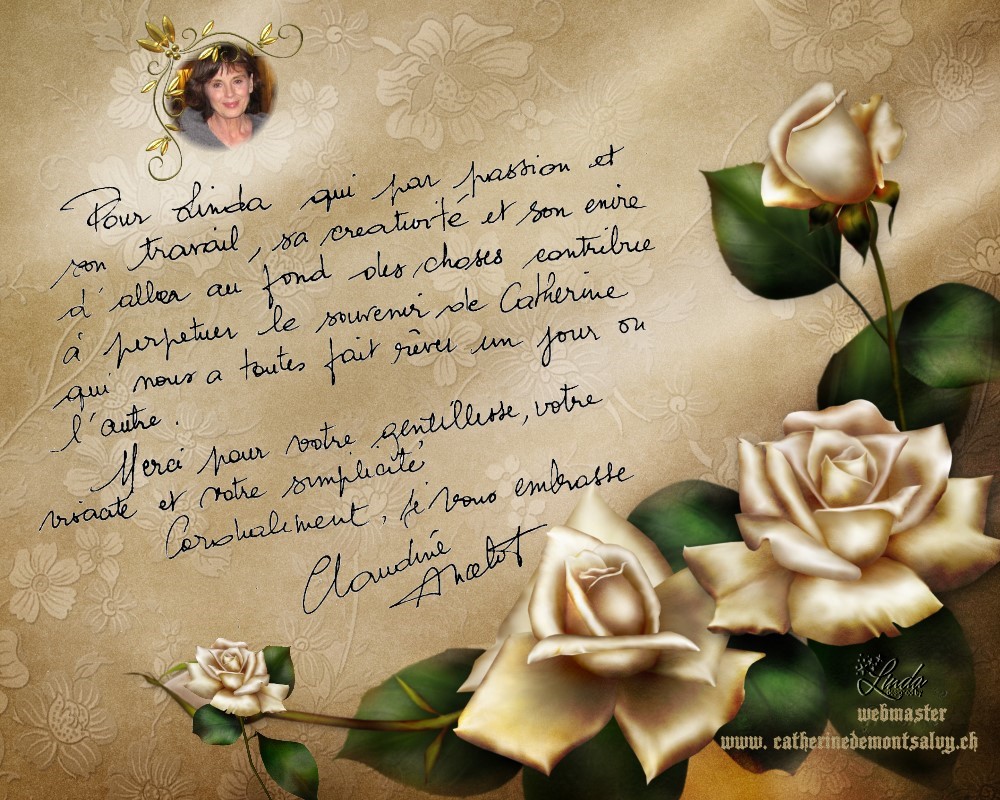 Pour Linda qui par passion et
son travail, sa creativité et son envie
d'aller au fond des choses contribue
à perpetuer le souvenir de Catherine
qui nous a toutes fait rêver un jour ou
l'autre.
Merci pour votre gentillesse, votre
vivacité et votre simplicité
Cordialement, je vous embrasse
Claudine
Ancelot
Linda
webmaster
www. catherinedemontsalvy.ch